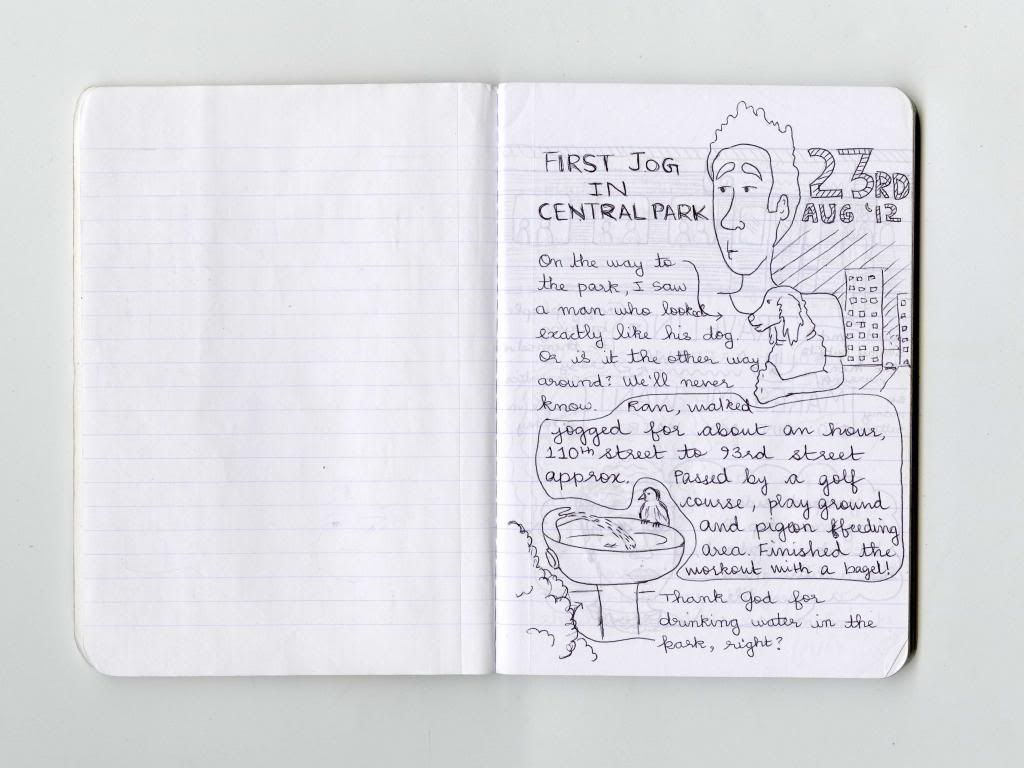 FIRST JOG
IN
CENTRAL PARK
23RD
AUG '12
On the way to
the park, I saw
a man who looked
exactly like his dog.
Or is it the other way
around? We'll never
know. Ran, walked
jogged for about an hour,
110th street to 93rd street
approx. Passed by a golf
course, play ground
and pigeon ffeeding
area. Finished the
workout with a bagel!
Thank God for
drinking water in the
park, right?